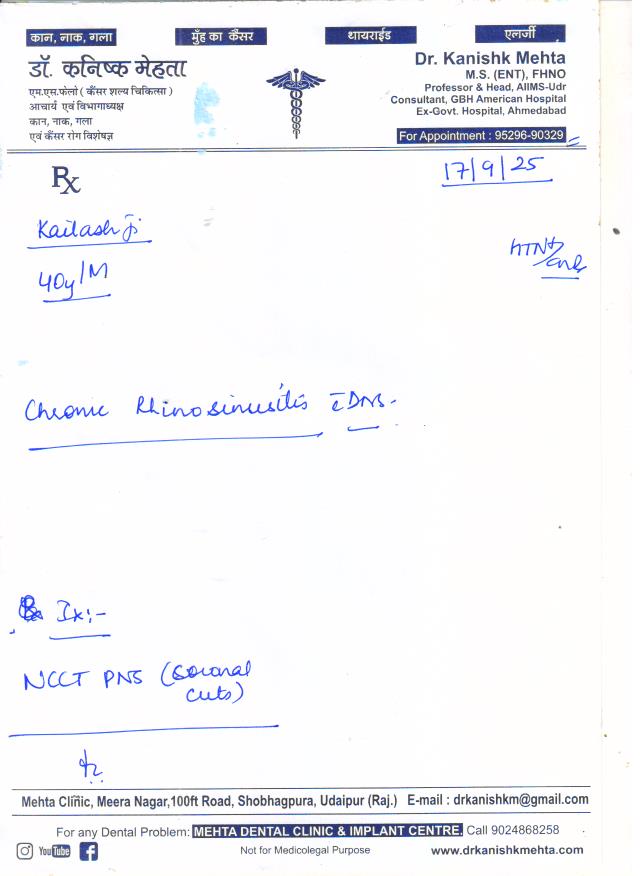 कान, नाक, गला मुँह का कैंसर थायराईड एलर्जी
डॉ. कनिष्क मेहता
एम.एस.फेलो ( कैंसर शल्य चिकित्सा )
आचार्य एवं विभागाध्यक्ष
कान, नाक, गला
एवं कैंसर रोग विशेषज्ञ
Dr. Kanishk Mehta
M.S. (ENT), FHNO
Professor & Head, AIIMS-Udr
Consultant, GBH American Hospital
Ex-Govt. Hospital, Ahmedabad
For Appointment : 95296-90329
Rx
17/9/25
Kailash ji
40y/M
HTN
Chronic Rhinosinusitis c̄ DNS.
Ix:-
NCCT PNS (Coronal
cuts)
Mehta Clinic, Meera Nagar,100ft Road, Shobhagpura, Udaipur (Raj.) E-mail : drkanishkm@gmail.com
For any Dental Problem: MEHTA DENTAL CLINIC & IMPLANT CENTRE. Call 9024868258
YouTube Not for Medicolegal Purpose www.drkanishkmehta.com